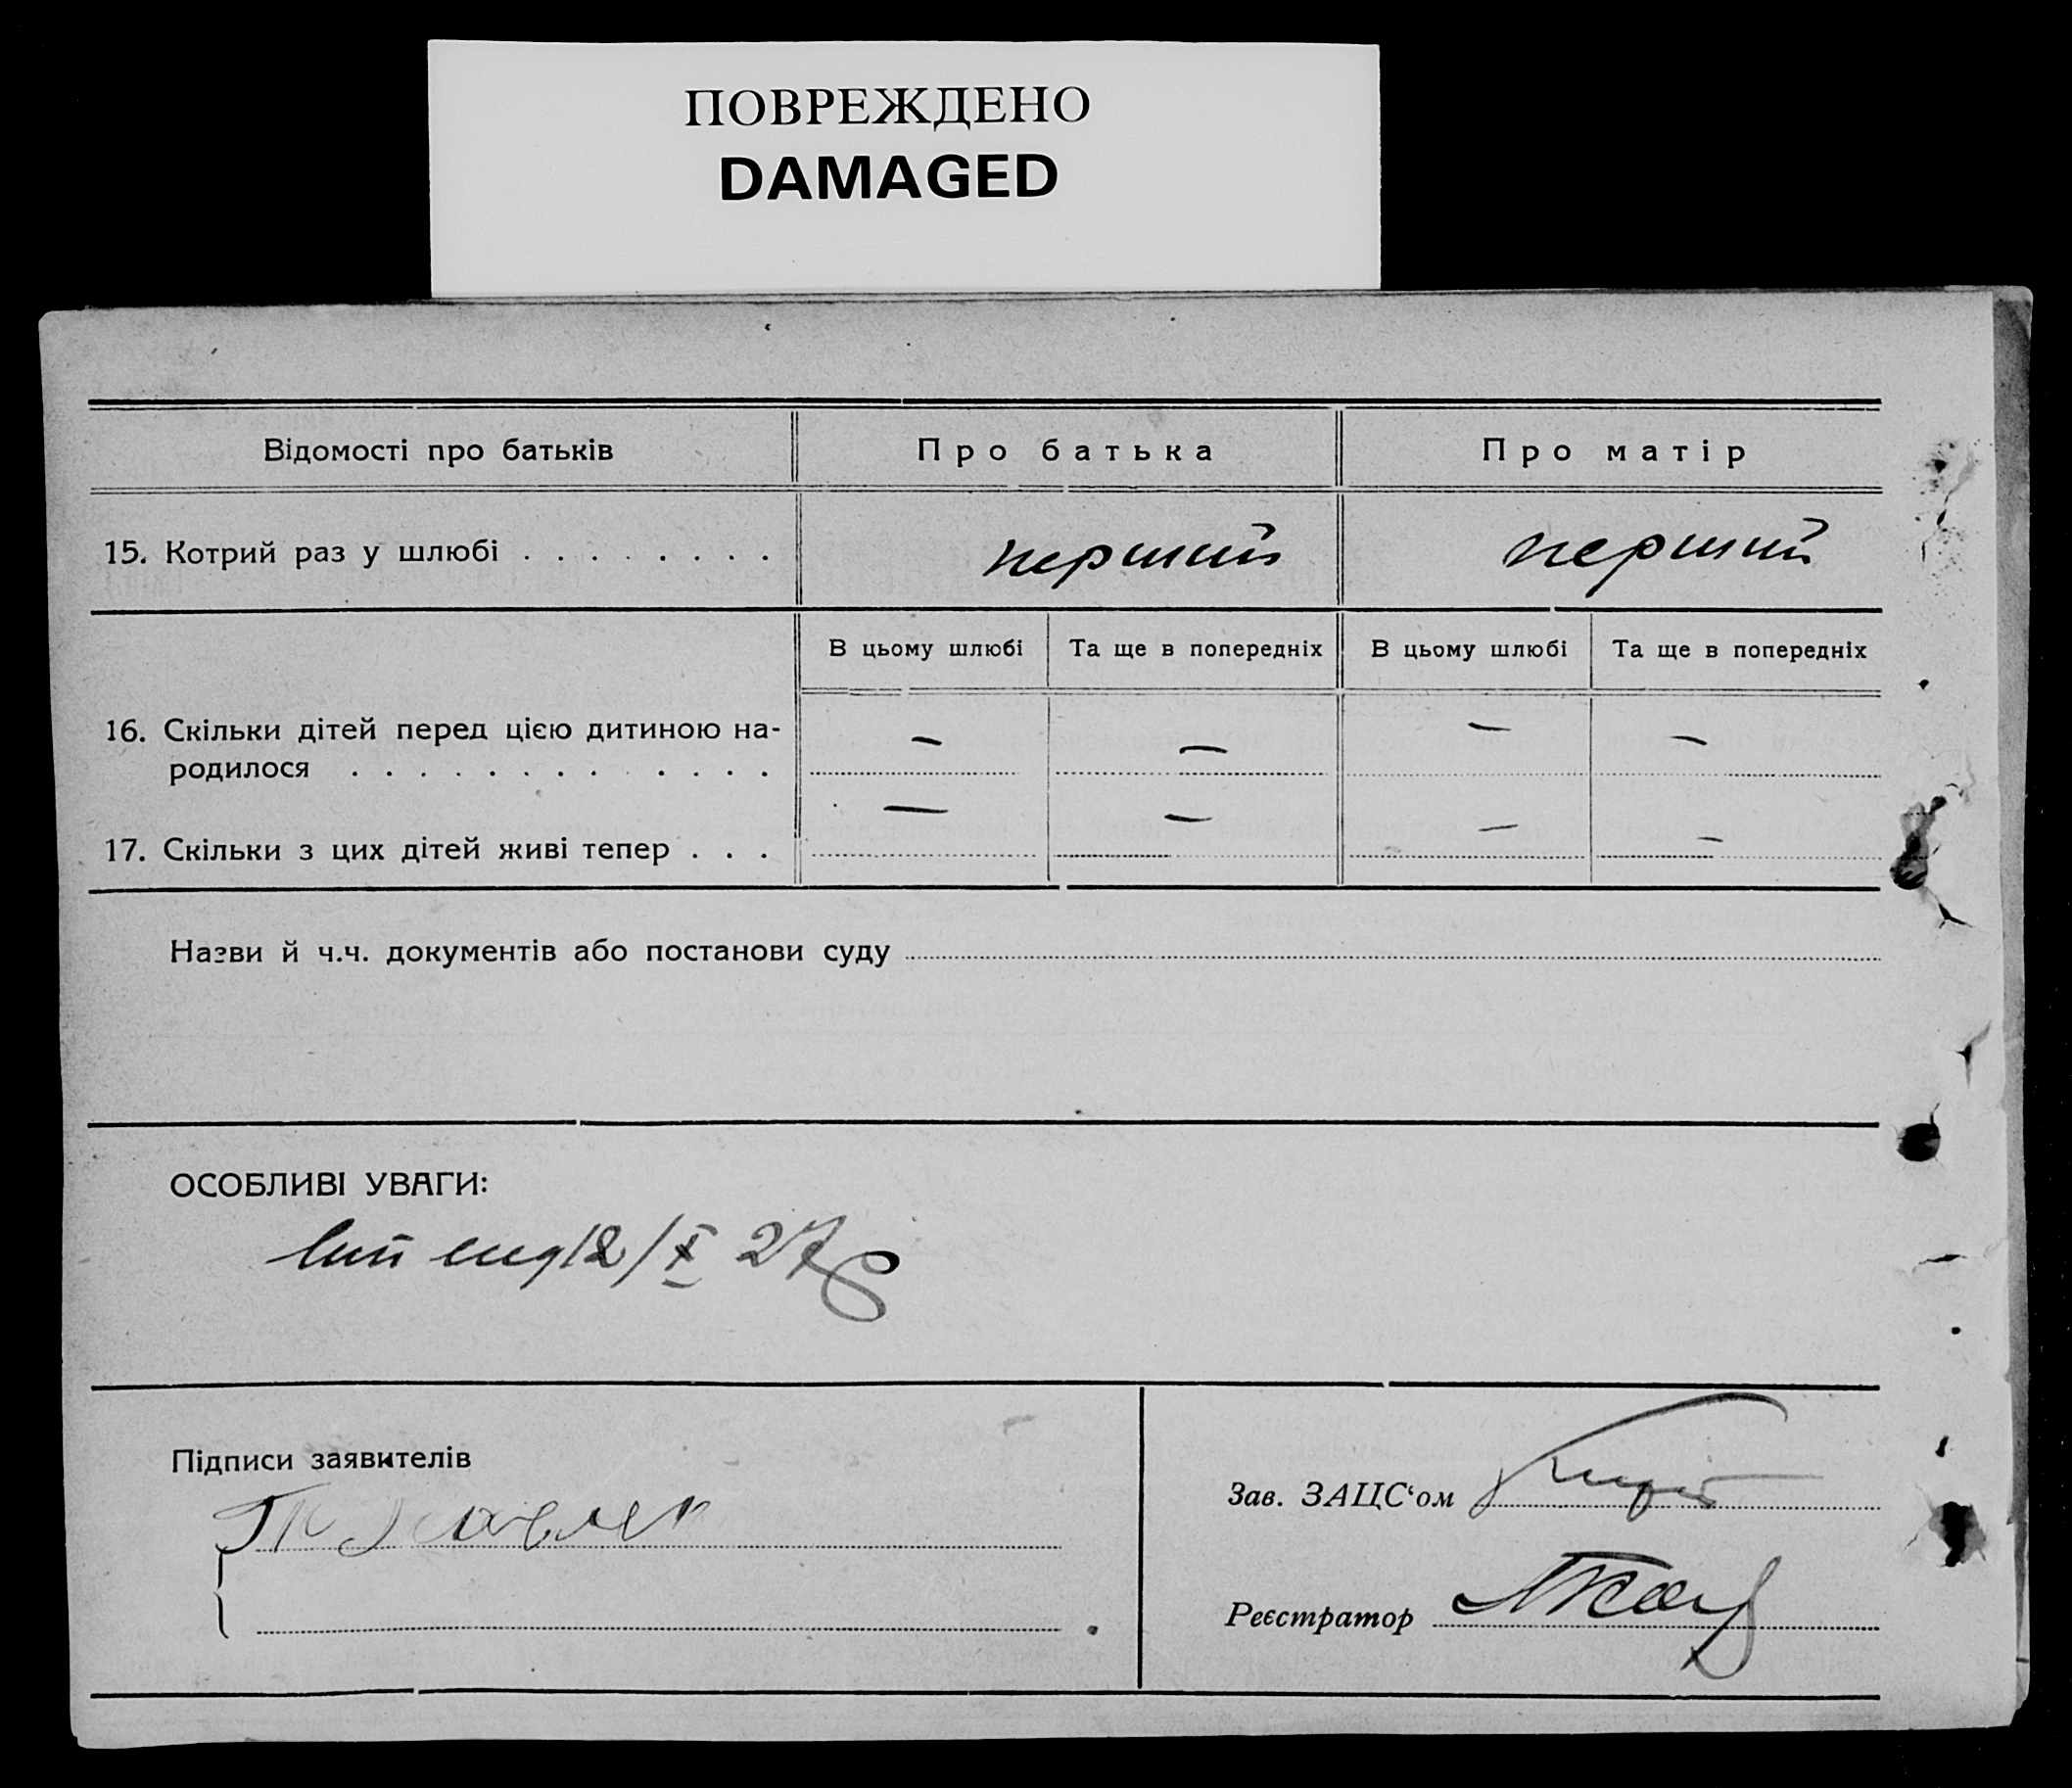 ПОВРЕЖДЕНО
DAMAGED
Відомості про батьків
Про батька
Про матір
15. Котрий раз у шлюбі . . . . . . . .
перший
перший
В цьому шлюбі
Та ще в попередніх
В цьому шлюбі
Та ще в попередніх
16. Скільки дітей перед цією дитиною на-
родилося . . . . . . . . . . . . .
— — — —
17. Скільки з цих дітей живі тепер . . .
— — — —
Назви й ч.ч. документів або постанови суду
ОСОБЛИВІ УВАГИ:
12/X 27
Підписи заявителів
Зав. ЗАЦС‘ом
Реєстратор